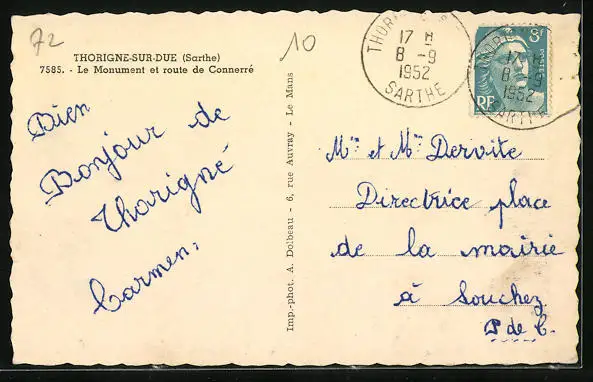 72
10
THORIGNE-SUR-DUE (Sarthe)
7585. - Le Monument et route de Connerré
Bien
Bonjour de
Thorigné
Carmen,
Imp.-phot. A. Dolbeau - 6, rue Auvray - Le Mans
17 H
8 - 9
1952
SARTHE
8F
RF
17 H
8 - 9
1952
SARTHE
Mr et Mme Dervite
Directrice place
de la mairie
à Souchez
P de C.